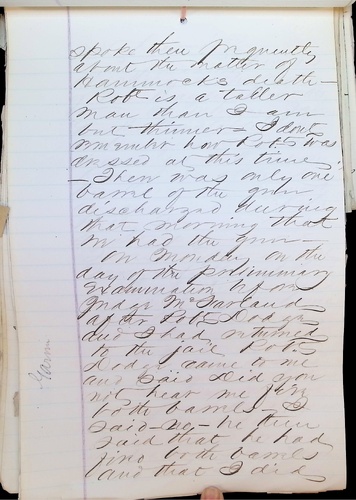 spoke then frequently
about the matter of
Hammocks death—
Robt is a taller
man than I am
but thinner— I dont
remember how Robt was
dressed at this time
— There was only one
barrel of the gun
discharged during
that morning that
we had the gun—
On Monday on the
day of the preliminary
Examination before
Judge McFarland
after Robt Dodge
and I had returned
to the jail Robt
Dodge came to me
and said did you
not hear me fire
both barrels— I
said—no—he then
said that he had
fired both barrels
and that I did